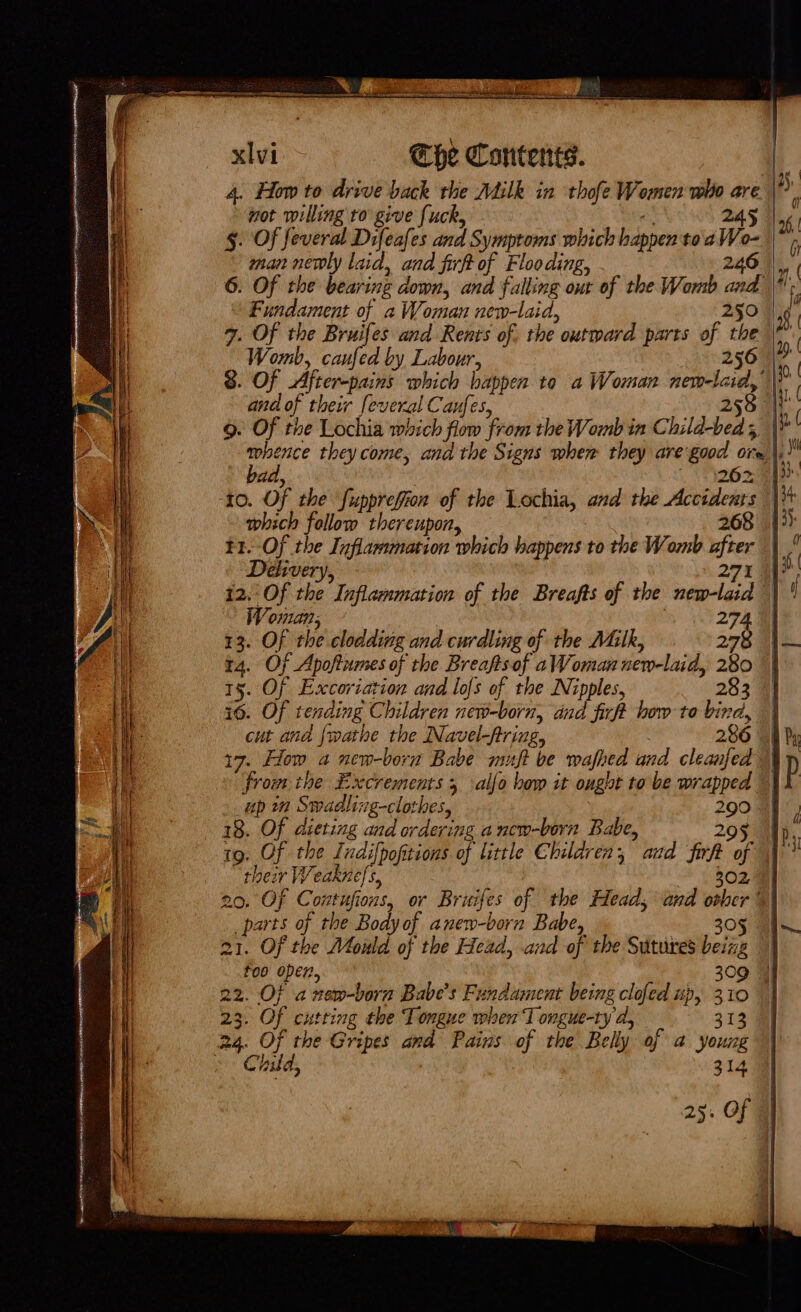 xlvi The Contents.
4. How to drive back the Milk in thoſe Women who are
not willing to give ſuck, 245
5. Of ſeveral Diſeaſes and Symptoms which happen to a Wo-
man newly laid, and firſt of Flooding, 246
6. Of the bearing down, and falling out of the Womb and
Fundament of a Woman new-laid, 250
7. Of the Bruiſes and Rents of, the outward parts of the
Womb, cauſed by Labour, 256
8. Of After-pains which happen to a Woman new-laid,
and of their ſeveral Cauſes, 258
9. Of the Lochia which flow from the Womb in Child-bed;
whence they come, and the Signs when they are good or
bad, 262
10. Of the ſuppreſſion of the Lochia, and the Accidents
which follow thereupon, 268
11. Of the Inflammation which happens to the Womb after
Delivery, 271
12. Of the Inflammation of the Breaſts of the new-laid
Woman, 274
13. Of the clodding and curdling of the Milk, 278
14. Of Apoſtumes of the Breaſts of a Woman new-laid, 280
15. Of Excoriation and loſs of the Nipples, 283
16. Of tending Children new-born, and firſt how to bind,
cut and ſwathe the Navel-ſtring, 286
17. How a new-born Babe muſt be waſhed and cleanſed
from the Excrements; alſo how it ought to be wrapped
up in Swadling-clothes, 290
18. Of dieting and ordering a new-born Babe, 295
19. Of the Indiſpoſitions of little Children; and firſt of
their Weakneſs, 302
20. Of Contuſions, or Bruiſes of the Head, and other
parts of the Body of a new-born Babe, 305
21. Of the Mould of the Head, and of the Sutures being
too open, 309
22. Of a new-born Babe's Fundament being cloſed up, 310
23. Of cutting the Tongue when Tongue-ty'd, 313
24. Of the Gripes and Pains of the Belly of a young
Child, 314
25. Of